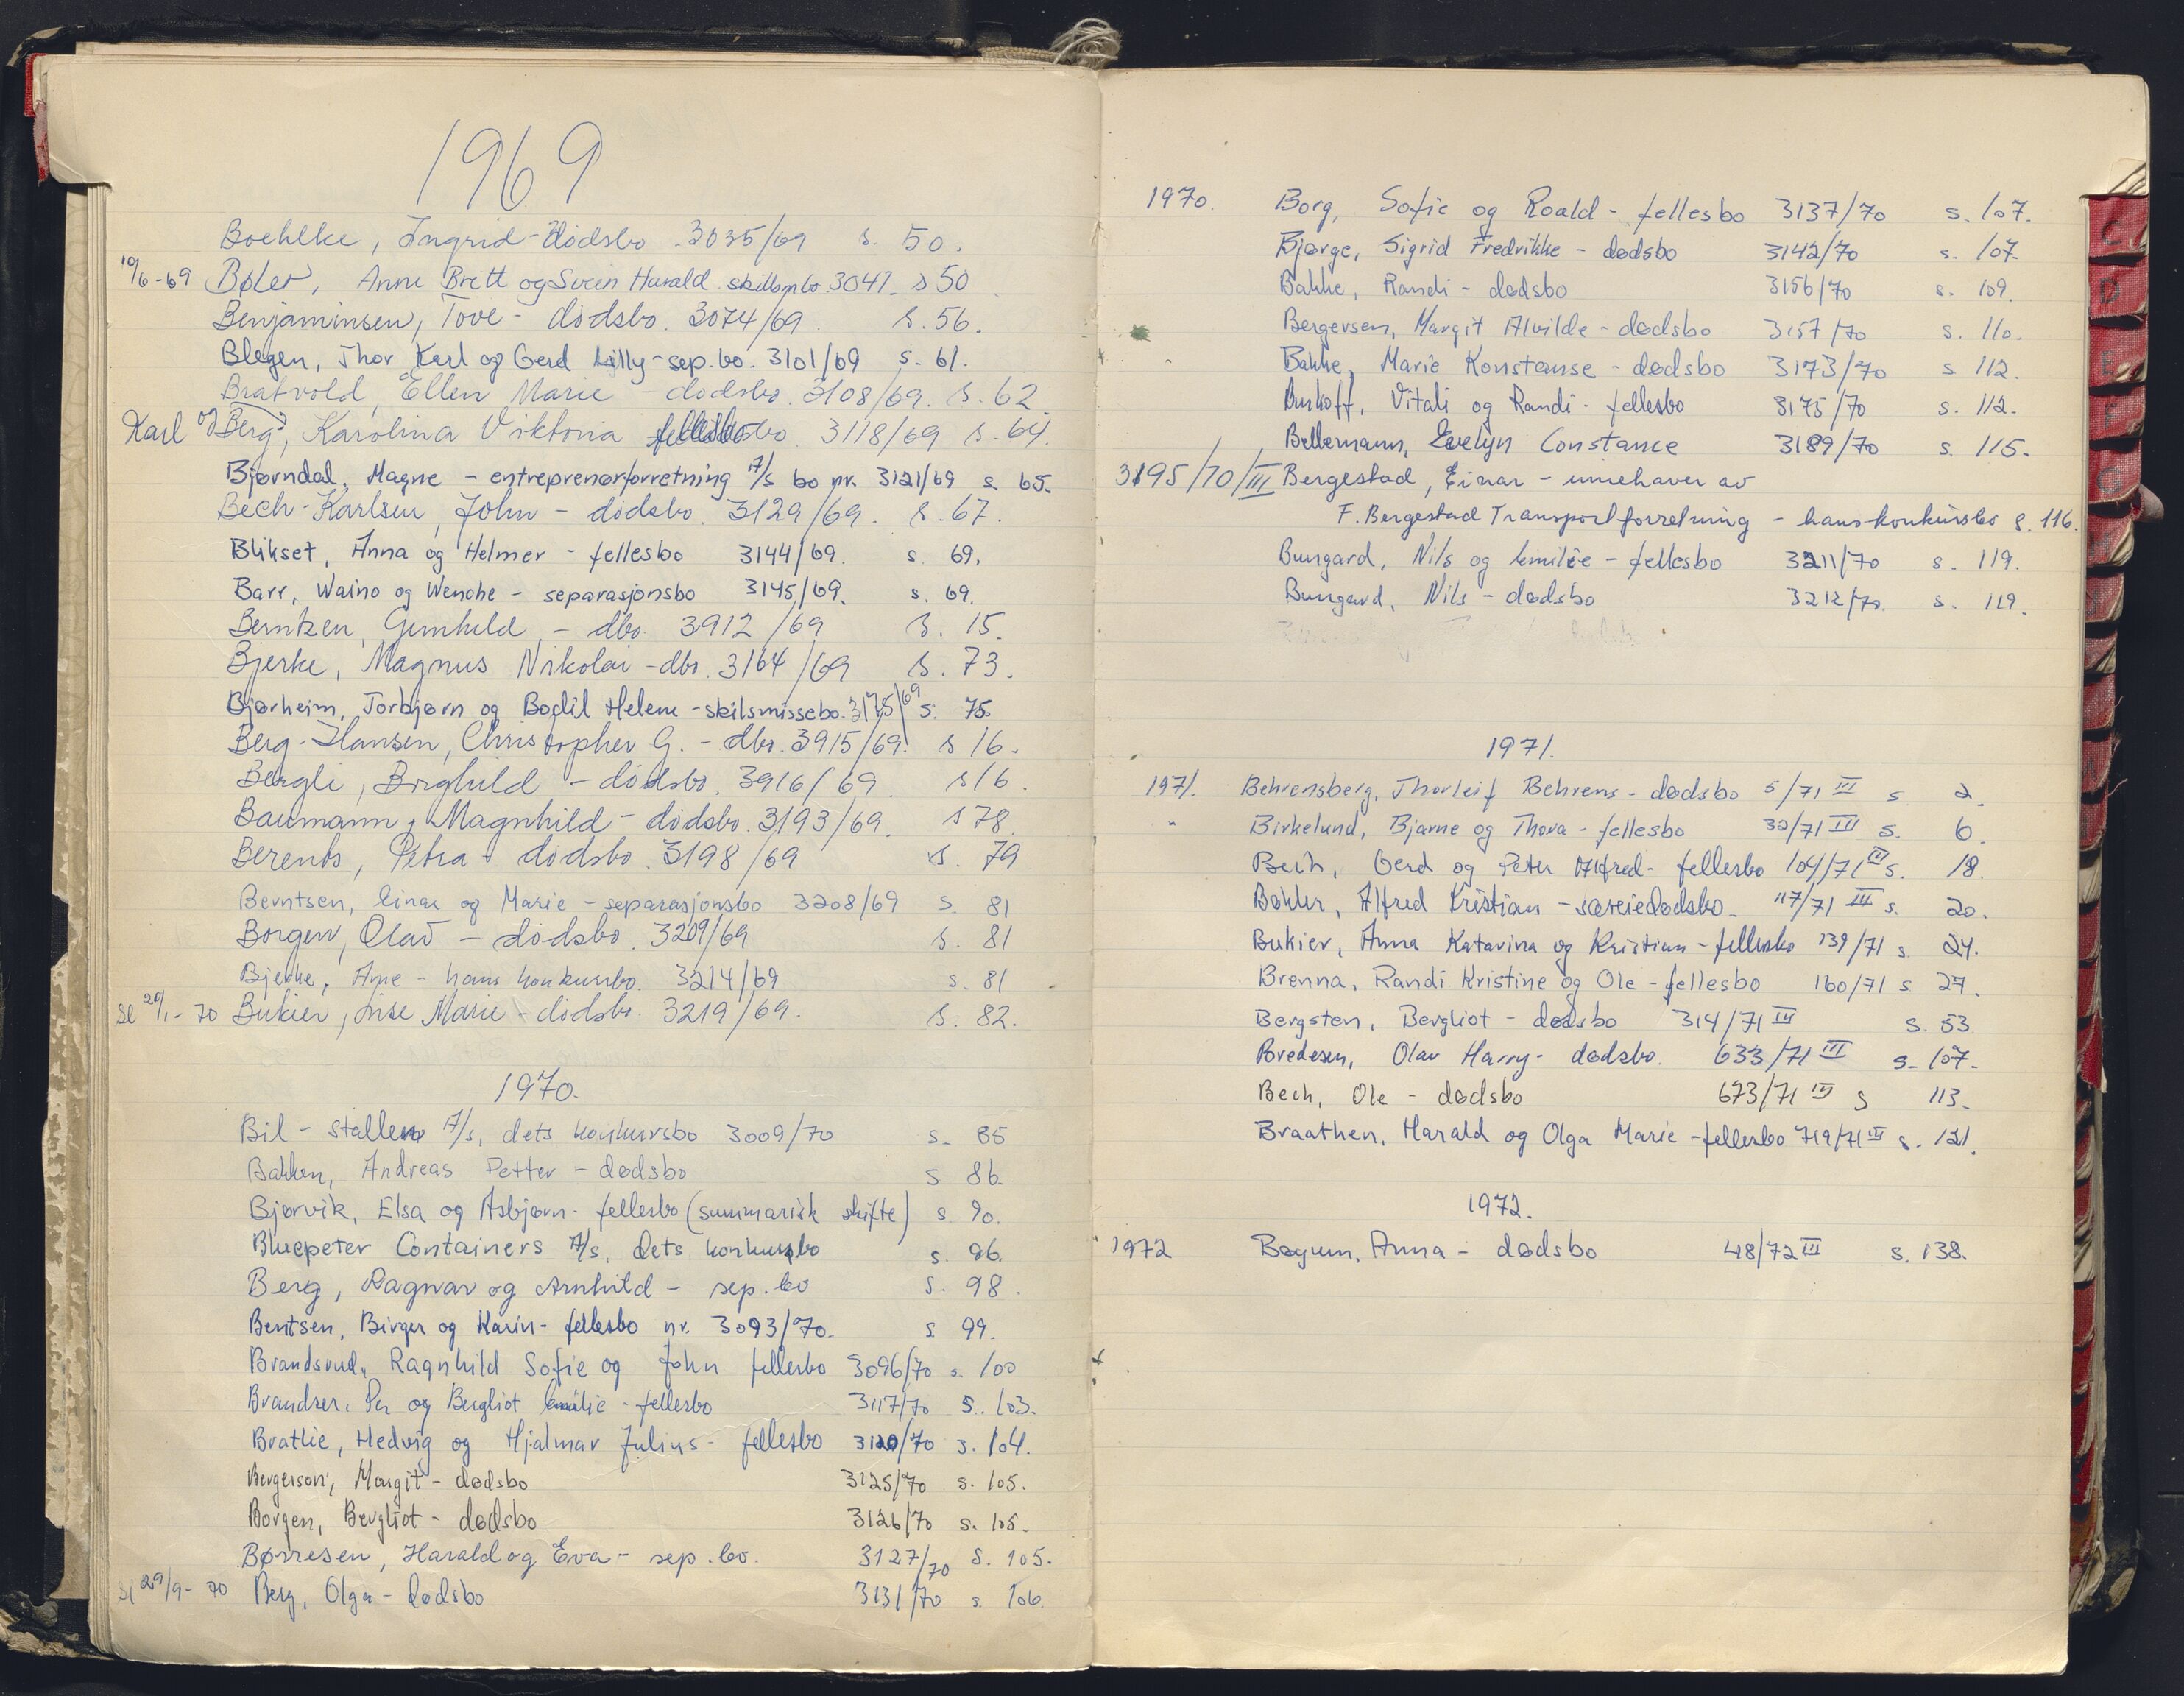 1969
Boehlke, Ingrid - dødsbo. 3035/69 s. 50.
10/6-69 Bøler, Anne Brett og Svein Harald skillsm bo 3041 s 50
Benjaminsen, Tove - dødsbo. 3074/69. s. 56.
Blegen, Thor Karl og Gerd Lilly - sep.bo. 3101/69 s. 61.
Bratvold, Ellen Marie - dødsbo. 3108/69. s. 62
Karl og Berg, Karolina Viktoria fellesbo. 3118/69 s. 64.
Bjørndal, Magne - entreprenørforretning A/S bo nr. 3121/69 s. 65.
Bech-Karlsen, John - dødsbo. 3129/69. s. 67.
Blikset, Anna og Helmer - fellesbo 3144/69. s. 69.
Barr, Waino og Wenche - separasjonsbo 3145/69. s. 69.
Berntzen, Gunhild, - dbo. 3912/69 s. 15.
Bjerke, Magnus Nikolai - dbo. 3164/69 s. 73.
Bjørheim, Torbjørn og Bodil Helene - skilsmissebo. 3175/69 s. 75.
Berg-Hansen, Christopher G. - dbo. 3915/69. s 16.
Bergli, Borghild - dødsbo. 3916/69. s 16.
Baumann, Magnhild - dødsbo. 3193/69. s 78.
Berents, Petra - dødsbo. 3198/69 s. 79
Berntsen, Einar og Marie - separasjonsbo 3208/69 s. 81
Borgen, Olav - dødsbo. 3209/69 s. 81
Bjerke, Arne - hans konkursbo. 3214/69 s. 81
se 20/1-70 Bukier, Lise Marie - dødsbo. 3219/69. s. 82.
1970.
Bil-stallen A/S, dets konkursbo 3009/70 s. 85
Bakken, Andreas Petter - dødsbo s 86.
Bjørvik, Elsa og Asbjørn - fellesbo (summarisk skifte) s. 90.
Bluepeter Containers A/S, dets konkursbo s. 96.
Berg, Ragnar og Arnhild - sep.bo s. 98.
Bentsen, Birger og Karin - fellesbo nr. 3093/70. s 99.
Brandsrud, Ragnhild Sofie og John fellesbo 3096/70 s. 100
Brandser, Per og Bergliot Emilie - fellesbo 3117/70 s. 103.
Bratlie, Hedvig og Hjalmar Julius - fellesbo 3120/70 s. 104.
Bergerson, Margit - dødsbo 3125/70 s. 105.
Borgen, Bergliot - dødsbo 3126/70 s. 105.
Børresen, Harald og Eva - sep.bo. 3127/70 s. 105.
sl 29/9-70 Berg, Olga - dødsbo 3131/70 s. 106.
1970. Borg, Sofie og Roald - fellesbo 3137/70 s. 107.
Bjørge, Sigrid Fredrikke - dødsbo 3142/70 s. 107.
Bakke, Randi - dødsbo 3156/70 s. 109.
Bergersen, Margit Alvilde - dødsbo 3157/70 s. 110.
" Bakke, Marie Konstanse - dødsbo 3173/70 s 112.
Burkoff, Vitali og Randi - fellesbo 3175/70 s. 112.
Bellemann, Evelyn Constance 3189/70 s. 115.
3195/70/III Bergestad, Einar - innehaver av
F. Bergestad Transportforretning - hans konkursbo s. 116.
Bungard, Nils og Emilie - fellesbo 3211/70 s. 119.
Bungard, Nils - dødsbo 3212/70. s. 119.
1971.
1971. Behrensberg, Thorleif Behrens - dødsbo 5/71 III s 2.
" Birkelund, Bjarne og Thora - fellesbo 32/71 III s. 6.
Bech, Gerd og Peter Alfred - fellesbo 104/71 III s. 18.
Bøhler, Alfred Kristian - særeiedødsbo - 117/71 III s. 20.
Bukier, Anna Katarina og Kristian - fellesbo 139/71 s. 24.
Brenna, Randi Kristine og Ole - fellesbo 160/71 s 27.
Bergsten, Bergliot - dødsbo 314/71 III s. 53
Bredesen, Olav Harry - dødsbo. 633/71 III s. 107.
Bech, Ole - dødsbo 673/71 III s 113.
Braathen, Harald og Olga Marie - fellesbo 719/71 III s. 121.
1972.
1972 Bøyum, Anna - dødsbo 48/72 III s. 138.
L
D
E
F
G